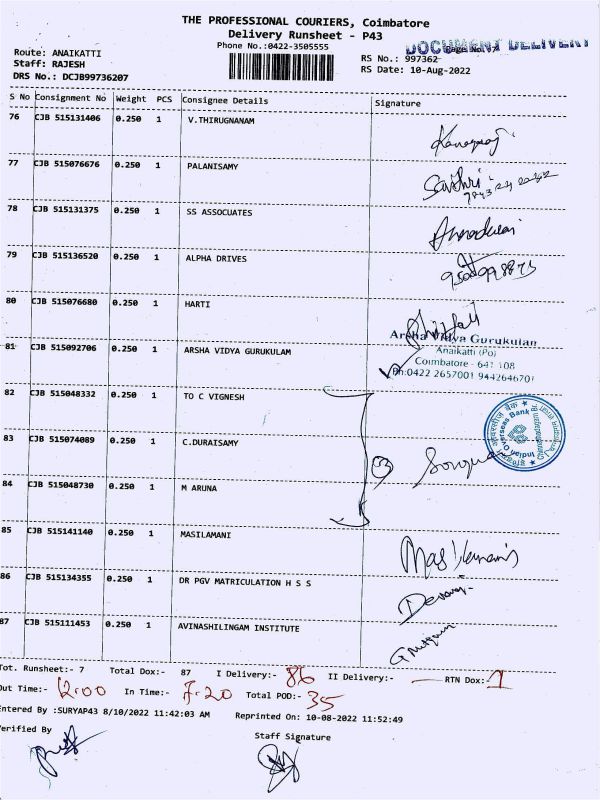 THE PROFESSIONAL COURIERS, Coimbatore
Delivery Runsheet - P43
Phone No.:0422-3505555
DOCUMENT DELIVERY
Route: ANAIKATTI
Staff: RAJESH
DRS No.: DCJB99736207
RS No.: 997362
RS Date: 10-Aug-2022
S No Consignment No Weight PCS Consignee Details Signature
76 CJB 515131406 0.250 1 V.THIRUGNANAM
77 CJB 515076676 0.250 1 PALANISAMY
78 CJB 515131375 0.250 1 SS ASSOCUATES
79 CJB 515136520 0.250 1 ALPHA DRIVES
80 CJB 515076680 0.250 1 HARTI
81 CJB 515092706 0.250 1 ARSHA VIDYA GURUKULAM
Arsha Vidya Gurukulan
Anaikatti (Po)
Coimbatore - 641 108
Ph:0422 2657001 9442646701
82 CJB 515048332 0.250 1 TO C VIGNESH
83 CJB 515074089 0.250 1 C.DURAISAMY
Indian Overseas Bank
84 CJB 515048730 0.250 1 M ARUNA
85 CJB 515141140 0.250 1 MASILAMANI
86 CJB 515134355 0.250 1 DR PGV MATRICULATION H S S
87 CJB 515111453 0.250 1 AVINASHILINGAM INSTITUTE
Tot. Runsheet:- 7 Total Dox:- 87 I Delivery:- 86 II Delivery:- — RTN Dox:- 1
Out Time:- 12.00 In Time:- 7.20 Total POD:- 35
Entered By :SURYAP43 8/10/2022 11:42:03 AM Reprinted On: 10-08-2022 11:52:49
Verified By
Staff Signature